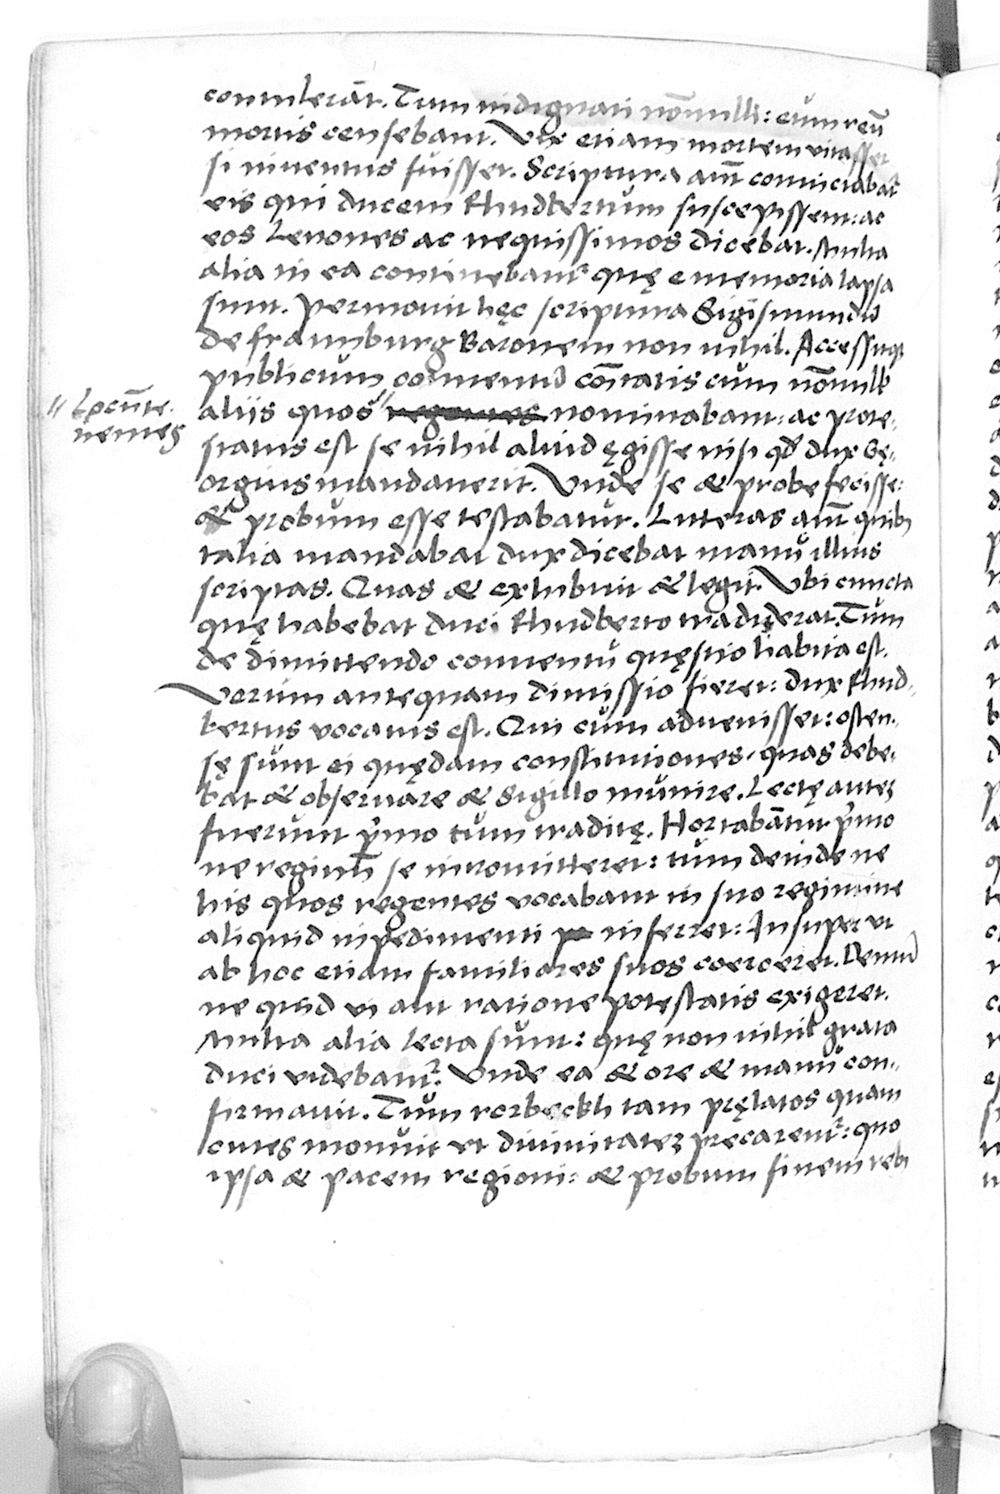 contulerāt. Tum indignati nōnulli: eum reū
mortis censebant. Vix etiam mortem vitasset
si inventus fuisset. Scriptura aūt conviciabat᷑
eis qui ducem Rhudbertum suscepissent: ac
eos Lenones ac nequissimos dicebat. Multa
alia in ea continebant᷑ quę e memoria lapsa
sunt. Permovit hęc scriptura Sigismundū
de fraunburg Baronem non nihil. Accessitq₃
publicum conventū cōitatis cum nōnullis
aliis quos " regentes nominabant: ac prote-
" Locūte-
nentes
status est se nihil aliud ęgisse nisi qd̄ dux Ge-
orgius mandaverit. Unde se & probe fecisse:
& probum esse testabatur. Litteras aūt quib₉
talia mandabat dux dicebat manu illius
scriptas. Quas & exhibuit & legit. Vbi cuncta
quę habebat duci Rhudberto tradiderat. Tum
de dimittendo conventu quęstio habita est.
Verum antequam dimissio fieret: dux Rhud-
bertus vocatus est. Qui cum advenisset: osten-
sę sunt ei quędam constitutiones, quas debe-
bat & observare & sigillo munire. Lectę autez
fuerunt p̄mo tum traditę. Hortabātur p̄mo
ne reginin̄ se intromitteret: tum deinde ne
his quos regentes vocabant in suo regimine
aliquid inpedimenti inferret: Insuper vt
ab hoc etiam familiares suos coerceret. Demū
ne quid vi aut ratione potestatis exigeret.
Multa alia lecta sunt: quę non nihil grata
duci videbant᷑. Unde ea & ore & manu con-
firmavit. Tum rorbeckh tam pręlatos quam
cives monuit vt divinitatez precarent᷑: quo
ipsa & pacem regioni: & probum finem reb₉